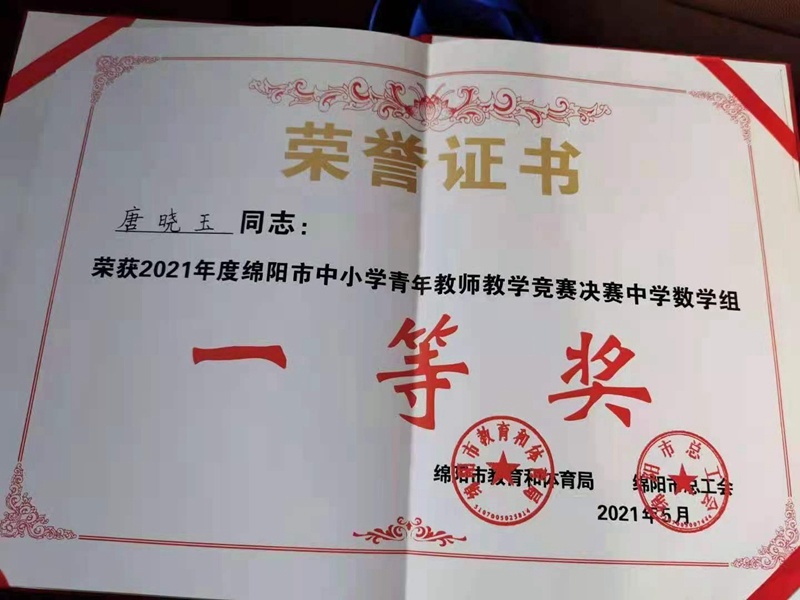 荣誉证书
唐晓玉 同志：
荣获2021年度绵阳市中小学青年教师教学竞赛决赛中学数学组
一等奖
绵阳市教育和体育局 绵阳市总工会
2021年5月
绵阳市教育和体育局
5107005025814
绵阳市总工会